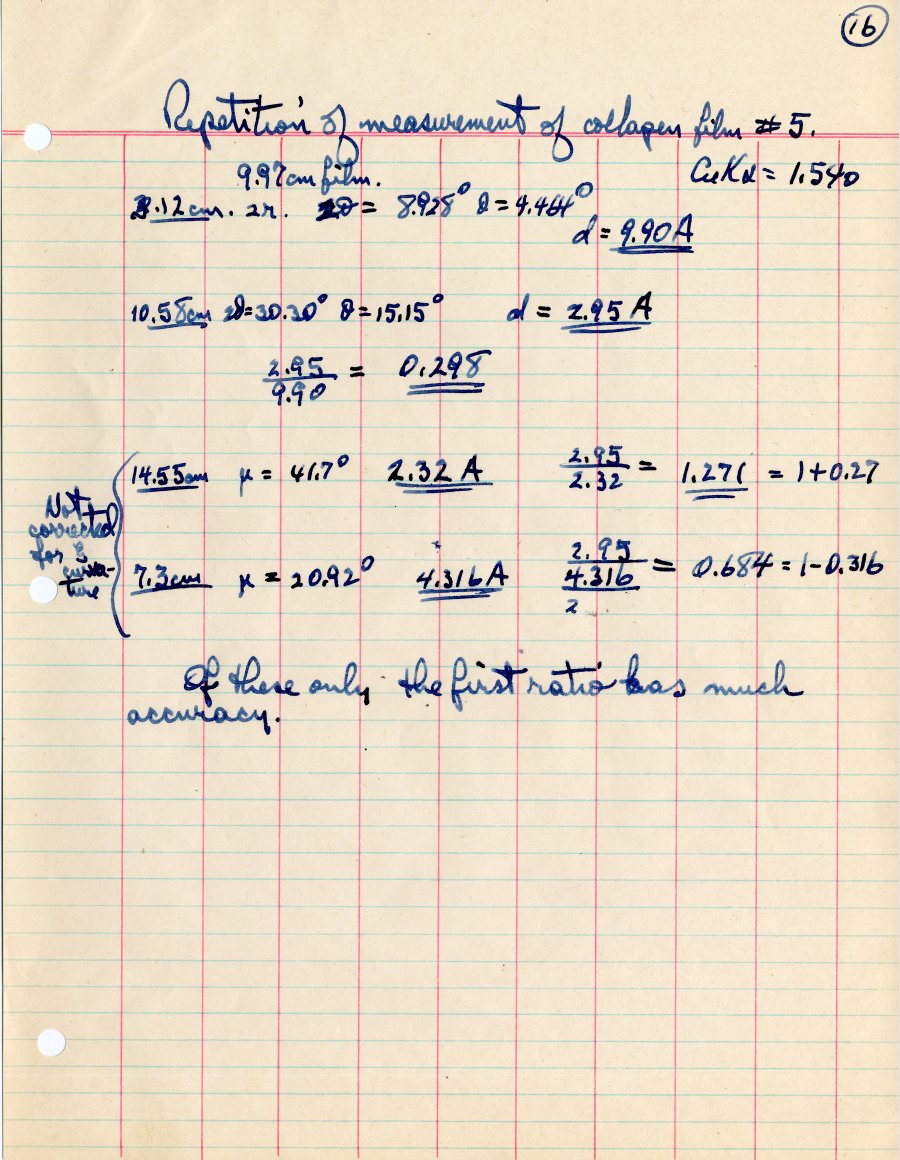 16
Repetition of measurement of collagen film #5.
9.97cm film. CuKα = 1.540
3.12cm. 2r. 2θ = 8.928° θ = 4.464°
d = 9.90 A
10.58cm 2θ = 30.30° θ = 15.15° d = 2.95 A
2.95/9.90 = 0.298
Not corrected for curvature
14.55cm μ = 41.7° 2.32 A 2.95/2.32 = 1.271 = 1+0.27
7.3cm μ = 20.92° 4.316 A 2.95/4.316 = 0.684 = 1-0.316
2
Of these only the first ratio has much
accuracy.